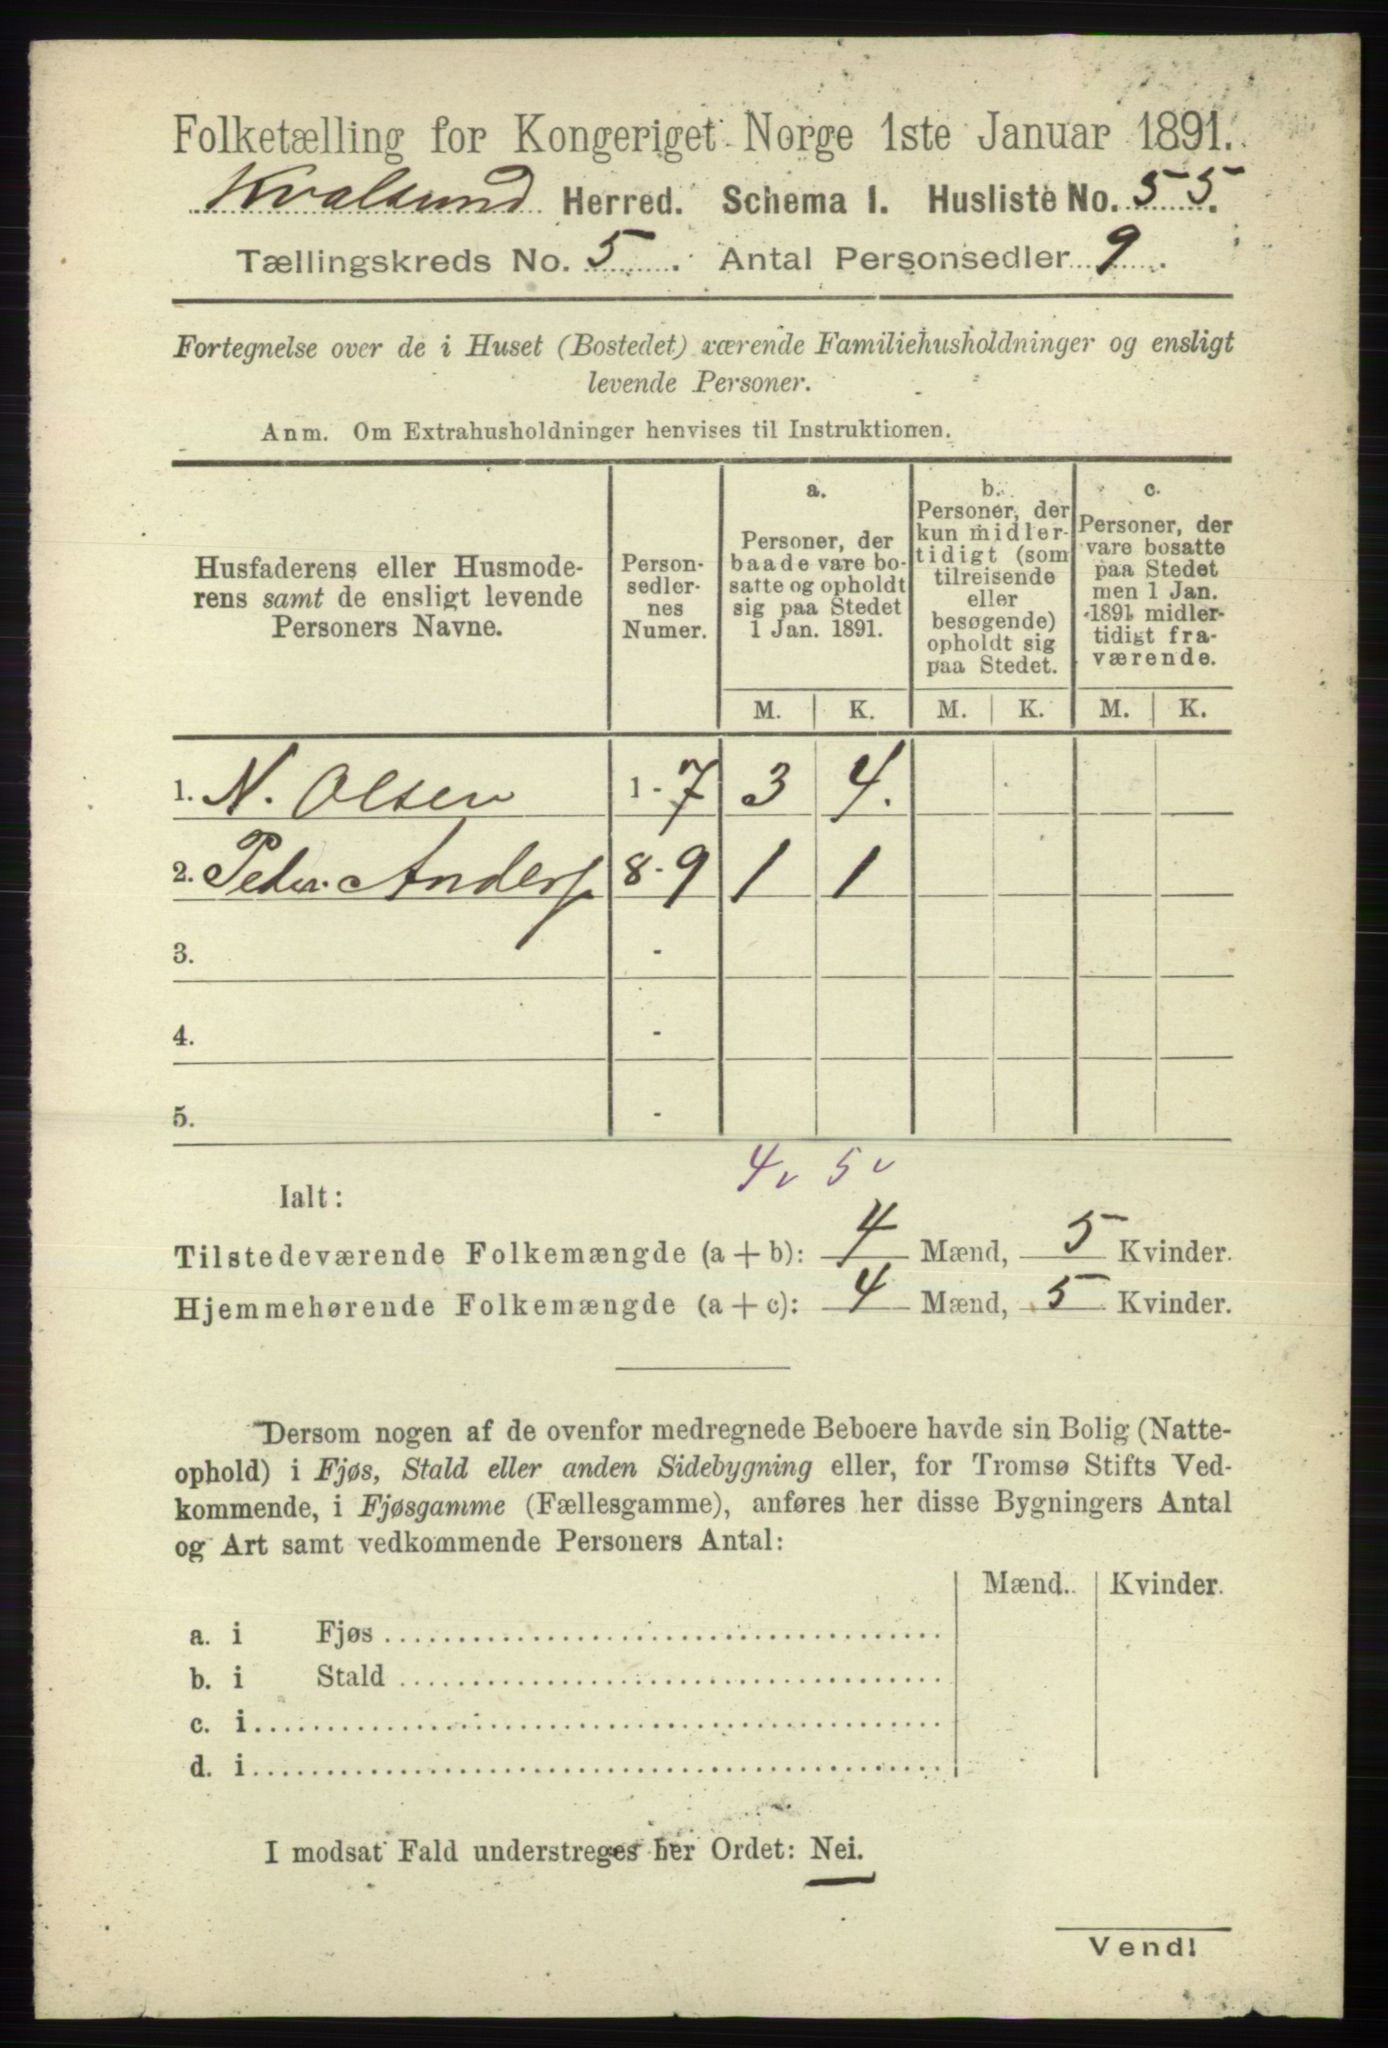 Folketælling for Kongeriget Norge 1ste Januar 1891.
Kvalsund Herred. Schema I. Husliste No. 55.
Tællingskreds No. 5. Antal Personsedler 9.
Fortegnelse over de i Huset (Bostedet) værende Familiehusholdninger og ensligt
levende Personer.
Anm. Om Extrahusholdninger henvises til Instruktionen.
Husfaderens eller Husmode-
rens samt de ensligt levende
Personers Navne.
Person-
sedler-
nes
Numer.
a.
Personer, der
baade vare bo-
satte og opholdt
sig paa Stedet
1 Jan. 1891.
b.
Personer, der
kun midler-
tidigt (som
tilreisende
eller
besøgende)
opholdt sig
paa Stedet.
c.
Personer, der
vare bosatte
paa Stedet
men 1 Jan.
1891 midler-
tidigt fra-
værende.
M. K. M. K. M. K.
1. N. Olsen 1 - 7 3 4.
2. Peder Anders 8 - 9 1 1
3. -
4. -
5. -
4 v 5 v
Ialt:
Tilstedeværende Folkemængde (a + b): 4 Mænd, 5 Kvinder.
Hjemmehørende Folkemængde (a + c): 4 Mænd, 5 Kvinder.
Dersom nogen af de ovenfor medregnede Beboere havde sin Bolig (Natte-
ophold) i Fjøs, Stald eller anden Sidebygning eller, for Tromsø Stifts Ved-
kommende, i Fjøsgamme (Fællesgamme), anføres her disse Bygningers Antal
og Art samt vedkommende Personers Antal:
Mænd. Kvinder.
a. i Fjøs
b. i Stald
c. i
d. i
I modsat Fald understreges her Ordet: Nei.
Vend!